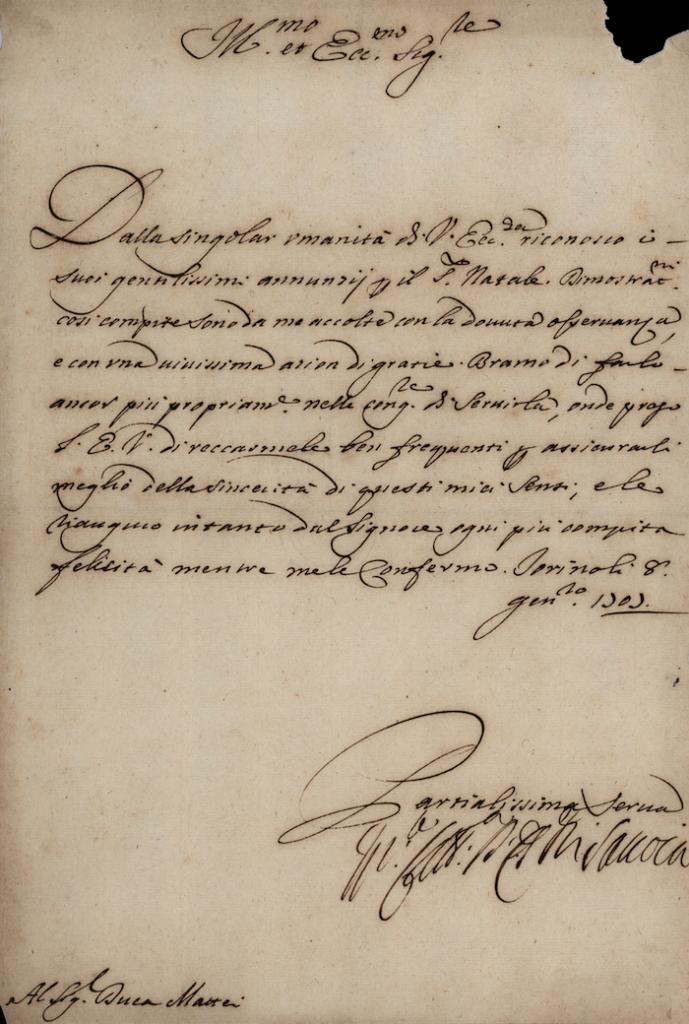 Ill.mo et Ecc.mo Sig.re
Dalla singolar umanità di V. Ecc.za riconosco i
suoi gentilissimi annunzij p il S. Natale. Dimostrat.ni
così compite sono da me accolte con la dovuta osservanza,
e con una vivissima azion di grazie. Bramo di farlo
ancor più propriam.e nelle cong.re di servirla, onde prego
l'E.V. di reccarmele ben frequenti p assicurarli
meglio della sincerità di questi miei senti, e le
riauguro intanto dal Signore ogni più compita
felicità mentre mele Confermo. 8.
gen.ro 1707.
Partialissima Serva
M.a di Savoia
Al Sig.r Duca Mattei